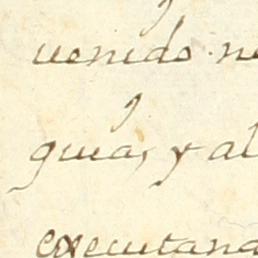 uenido ne
guias, y al
executana